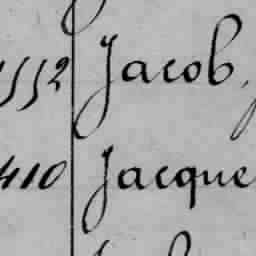 1552 Jacob,
410 Jacque